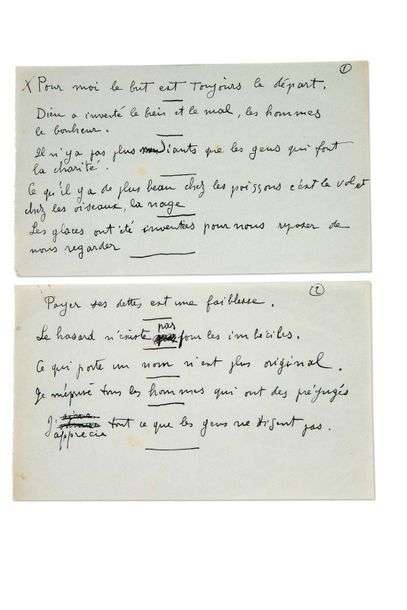 ①
X Pour moi le but est toujours le départ.
Dieu a inventé le bien et le mal, les hommes
le bonheur.
Il n'y a pas plus mendiants que les gens qui font
la charité.
Ce qu'il y a de plus beau chez les poissons c'est le vol et
chez les oiseaux, la nage
Les glaces ont été inventées pour nous reposer de
nous regarder
(2)
Payer ses dettes est une faiblesse.
Le hasard n'existe pas
pour les imbéciles.
Ce qui porte un nom n'est plus original.
Je méprise tous les hommes qui ont des préjugés
J'apprécie tout ce que les gens ne disent pas.